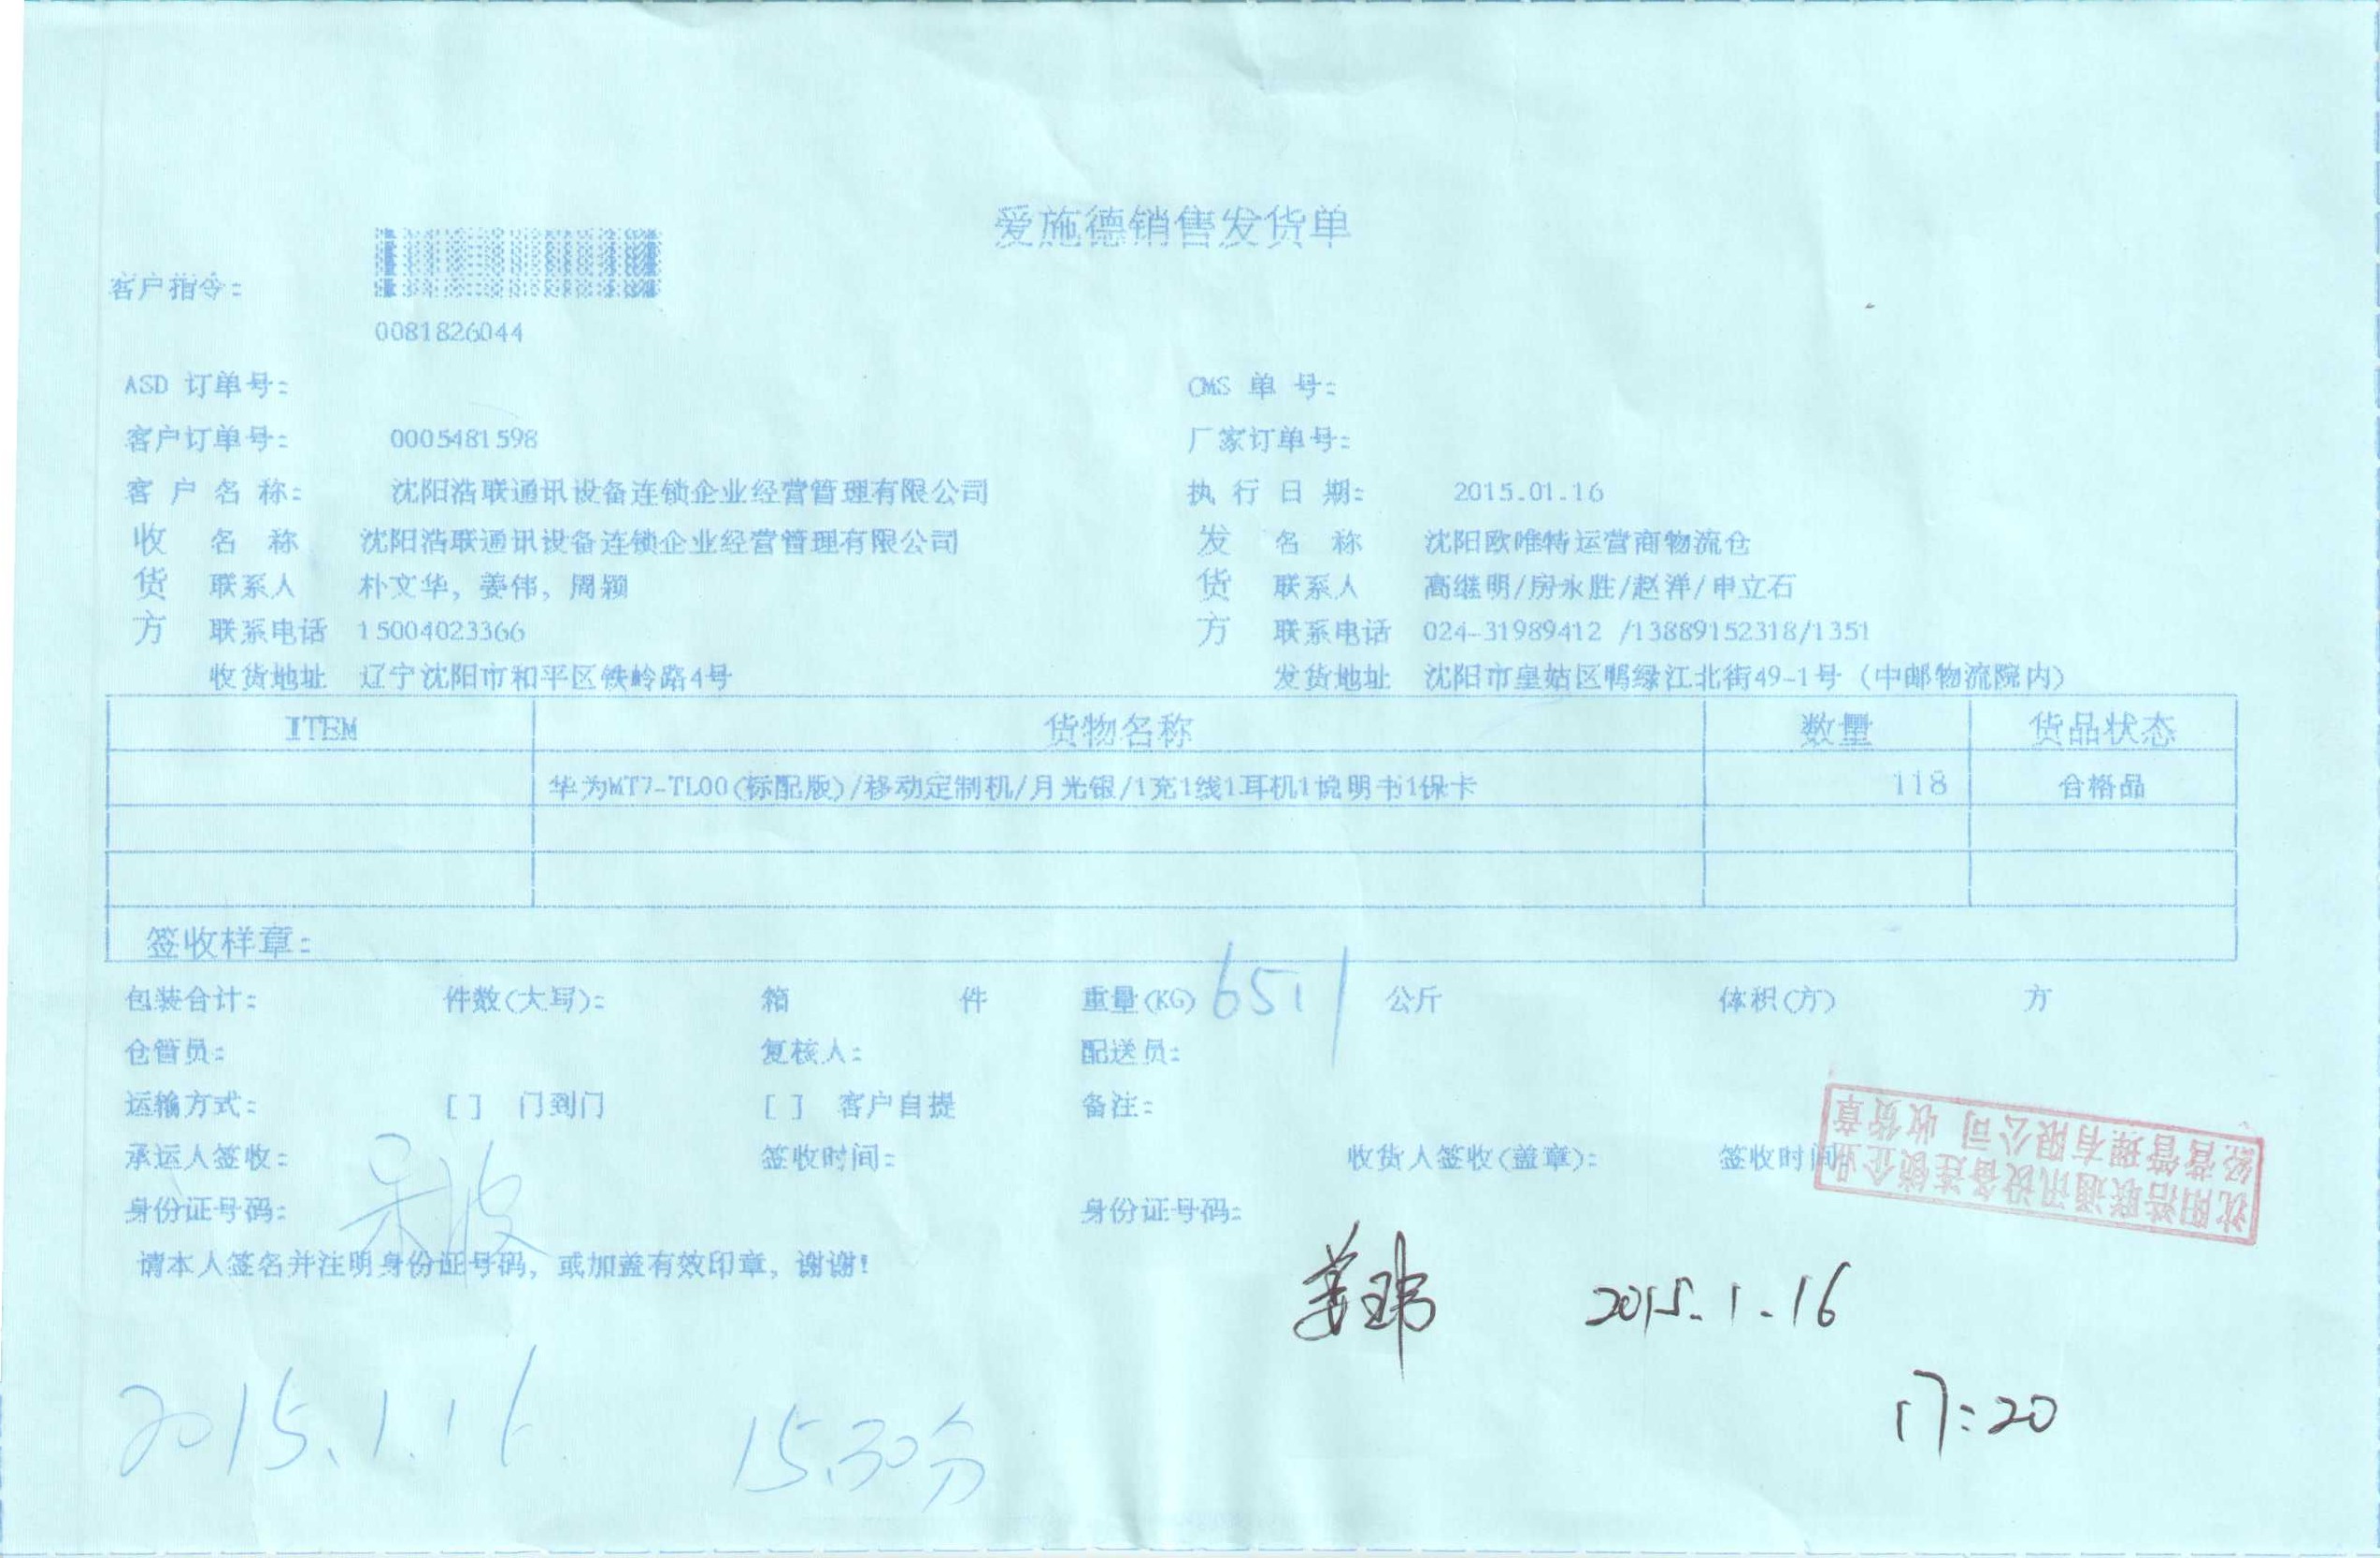 爱施德销售发货单
客户指令：
0081826044
ASD 订单号： CMS 单 号：
客户订单号： 0005481598 厂家订单号：
客 户 名 称： 沈阳浩联通讯设备连锁企业经营管理有限公司 执 行 日 期： 2015.01.16
收 名 称 沈阳浩联通讯设备连锁企业经营管理有限公司 发 名 称 沈阳欧唯特运营商物流仓
货 联系人 朴文华，姜伟，周颖 货 联系人 高继明/房永胜/赵洋/申立石
方 联系电话 15004023366 方 联系电话 024-31989412 /13889152318/1351
收货地址 辽宁沈阳市和平区铁岭路4号 发货地址 沈阳市皇姑区鸭绿江北街49-1号（中邮物流院内）
ITEM 货物名称 数量 货品状态
华为MT7-TL00(标配版)/移动定制机/月光银/1充1线1耳机1说明书1保卡 118 合格品
签收样章：
包装合计： 件数(大写)： 箱 件 重量(KG) 公斤 体积(方) 方
仓管员： 复核人： 配送员：
运输方式： [ ] 门到门 [ ] 客户自提 备注：
承运人签收： 签收时间： 收货人签收(盖章)： 签收时间
身份证号码： 身份证号码：
沈阳浩联通讯设备连锁企业
经营管理有限公司 收货章
请本人签名并注明身份证号码，或加盖有效印章，谢谢！
姜玮 2015.1.16
17:20
2015.1.16 15.30分